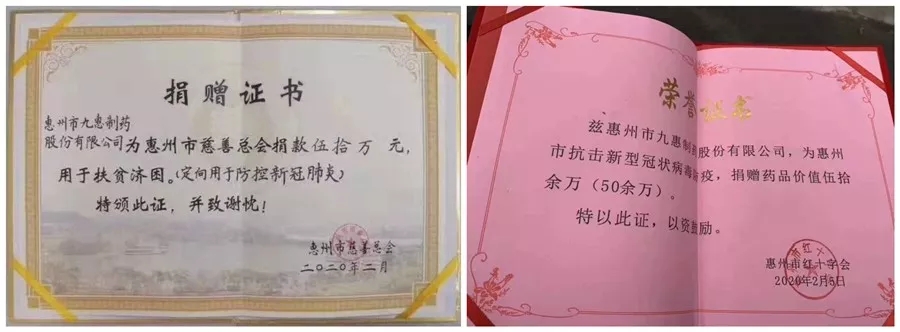 捐赠证书
惠州市九惠制药
股份有限公司为惠州市慈善总会捐款伍拾万元，
用于扶贫济困。（定向用于防控新冠肺炎）
特颁此证，并致谢忱！
惠州市慈善总会
二〇二〇年二月
荣誉证书
兹惠州市九惠制药股份有限公司，为惠州
市抗击新型冠状病毒防疫，捐赠药品价值伍拾
余万（50余万）。
特以此证，以资鼓励。
惠州市红十字会
2020年2月5日